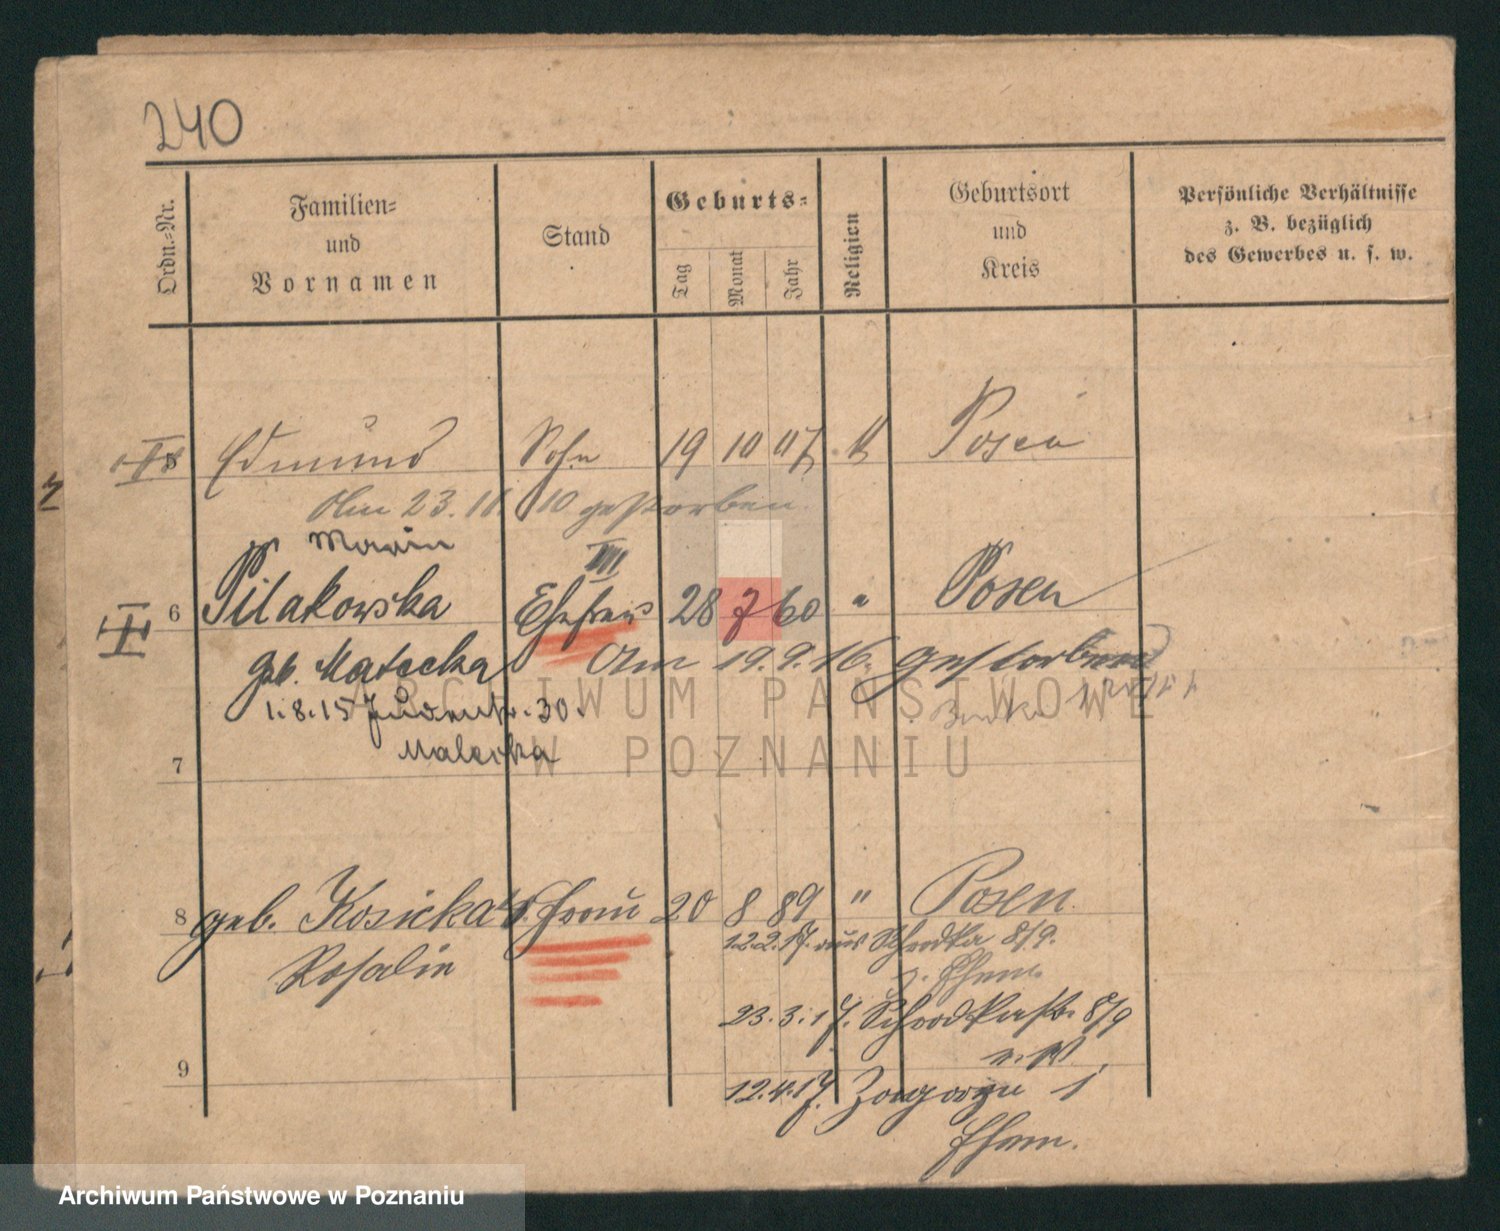 240
Ordn.-Nr.
Familien-
und
Vornamen
Stand
Geburts-
Tag Monat Jahr
Religion
Geburtsort
und
Kreis
Persönliche Verhältnisse
z. B. bezüglich
des Gewerbes u. s. w.
5 Edmund Sohn 19 10 07 k Posen
Am 23. 11. 10 gestorben
Maria
III
6 Pilakowska Ehefrau 28 7 60 " Posen
geb. Matecka Am 19. 9. 16. gestorben
1.8.15 Judenstr. 30.
Malecka
7
ARCHIWUM PAŃSTWOWE
W POZNANIU
8 geb. Kosicka Frau 20 8 89 " Posen
Rosalie
12.2.17. aus Schrodka 8/9.
z. Ehem.
23.3.17. Schrodkastr. 8/9
9
12.4.17. Zagorze 1
Ehem.
Archiwum Państwowe w Poznaniu